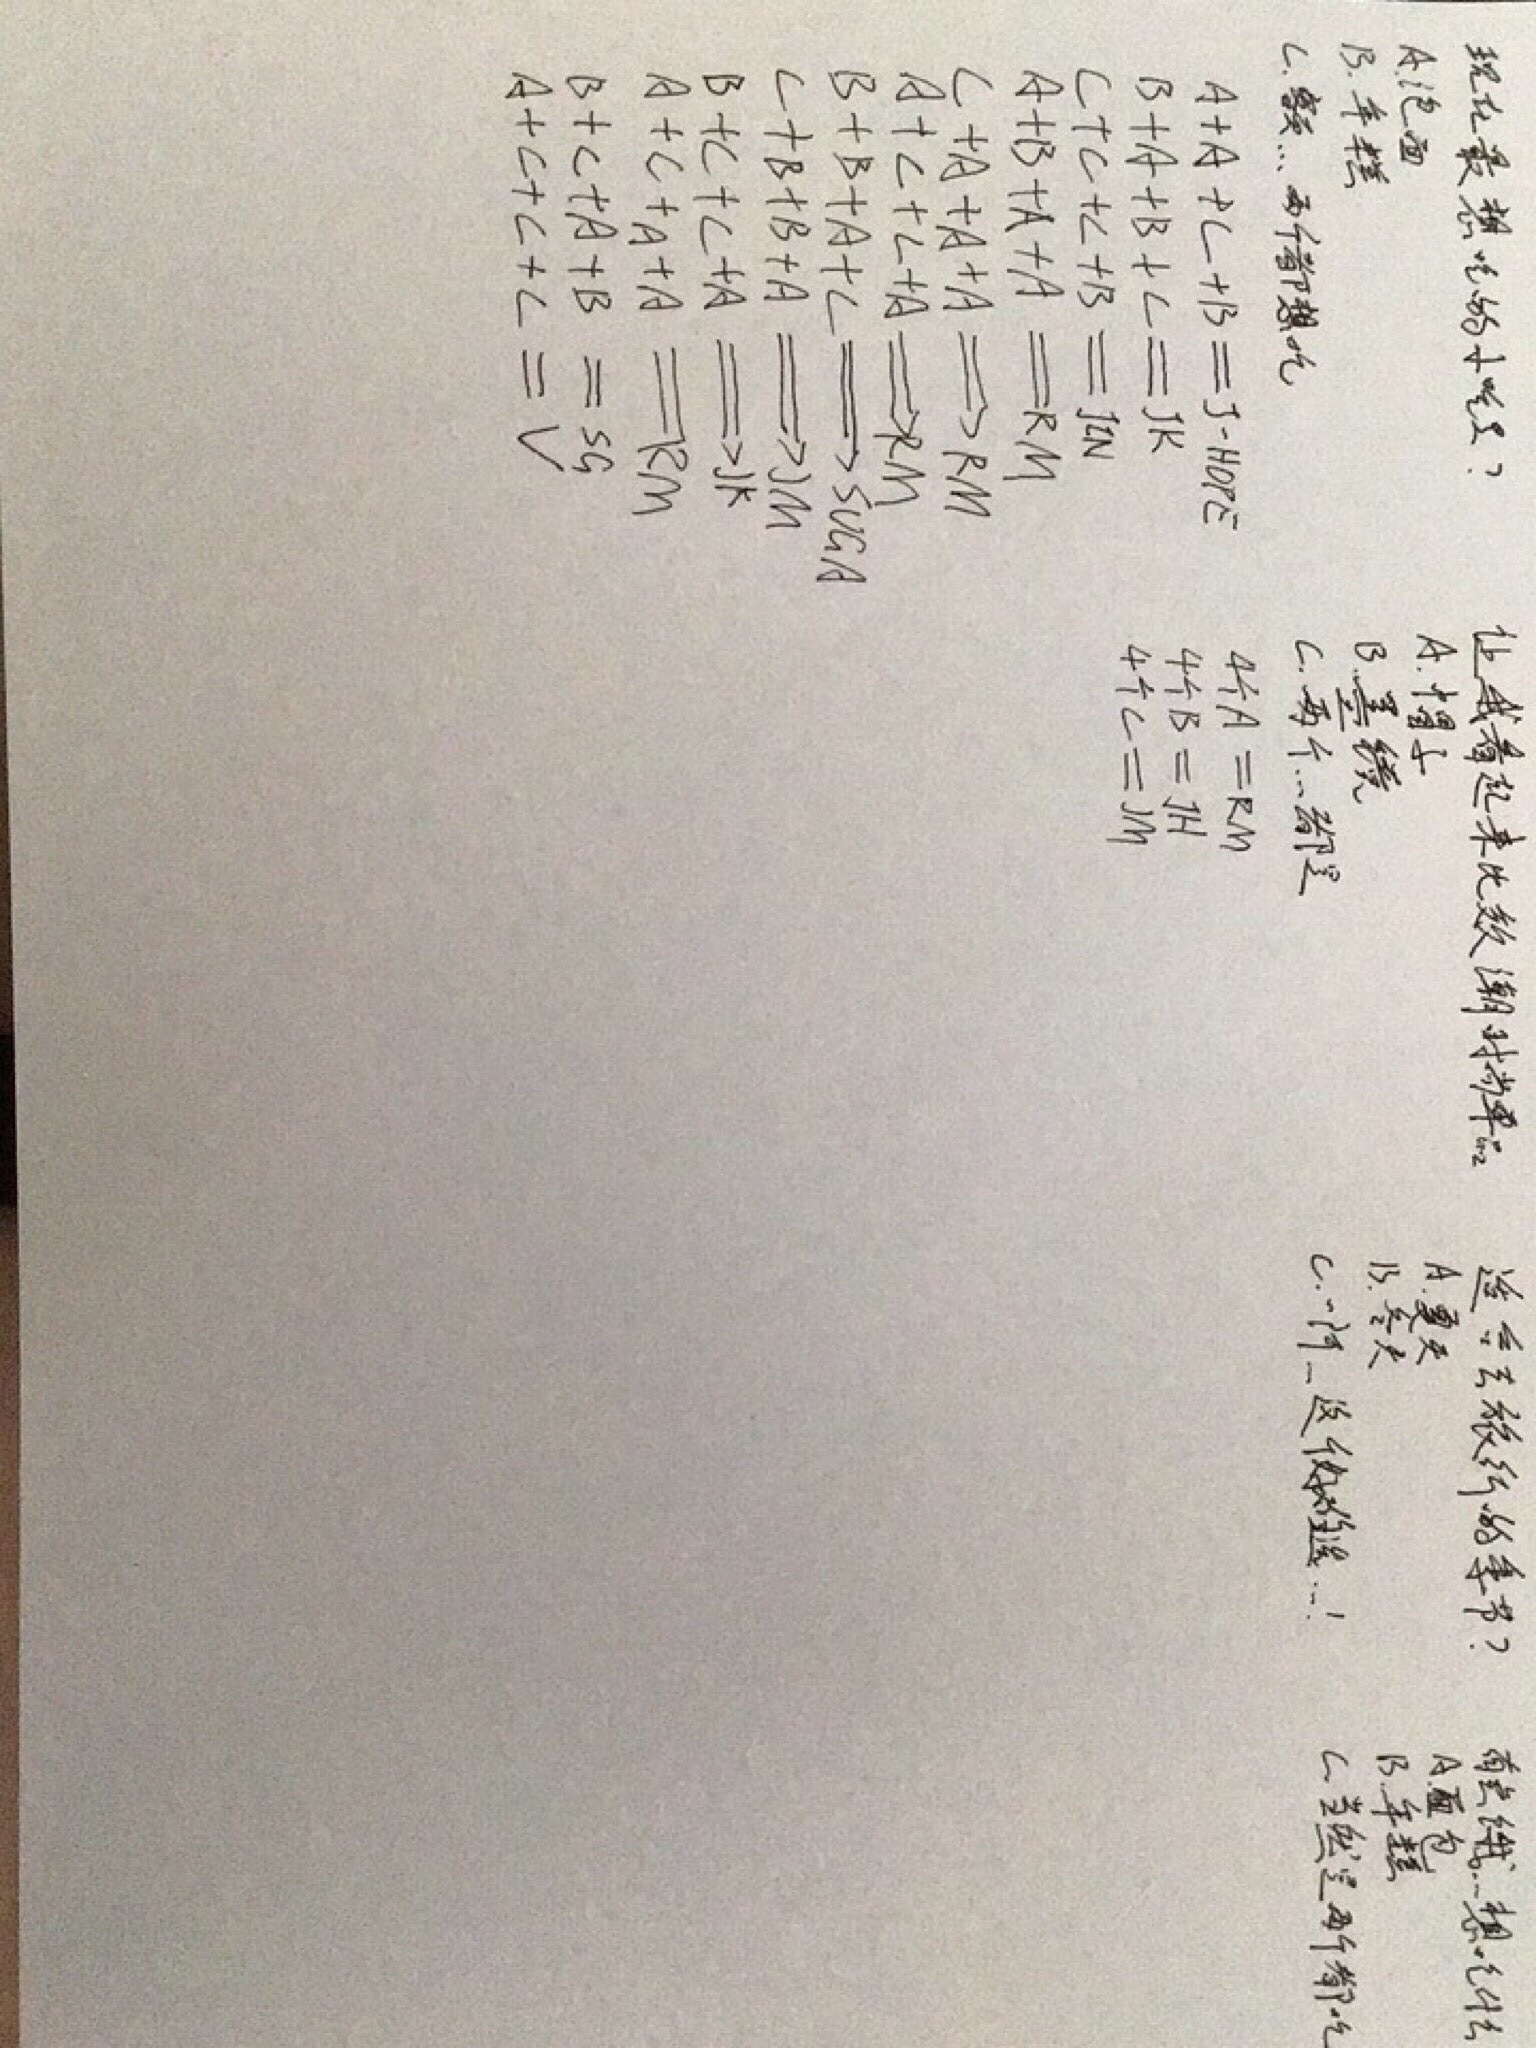 现在最想吃的小吃是?
A.泡面
B.年糕
C.额...两个都想吃
A+A+C+B=J-HOPE
B+A+B+C=JK
C+C+C+B=JIN
A+B+A+A=RM
C+A+A+A=>RM
A+C+C+A=>RM
B+B+A+C=>SUGA
C+B+B+A=>JM
B+C+C+A=>JK
A+C+A+A=RM
B+C+A+B=SG
A+C+C+C=V
让我看起来比较潮时尚单品
A.帽子
B.墨镜
C.两个...都是
4个A=RM
4个B=JH
4个C=JM
适合去旅行的季节?
A.夏天
B.冬天
C.啊_这个好难选...!
有点饿...想吃什么
A.面包
B.年糕
C.当然是两个都吃